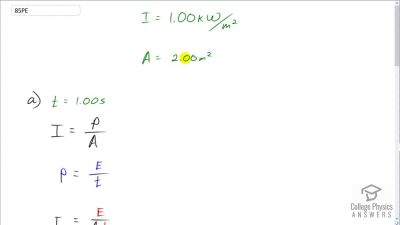 85PE
I = 1.00 kW/m²
A = 2.00 m²
a) t = 1.00 s
I = P/A
P = E/t
I = E
College Physics
ANSWERS